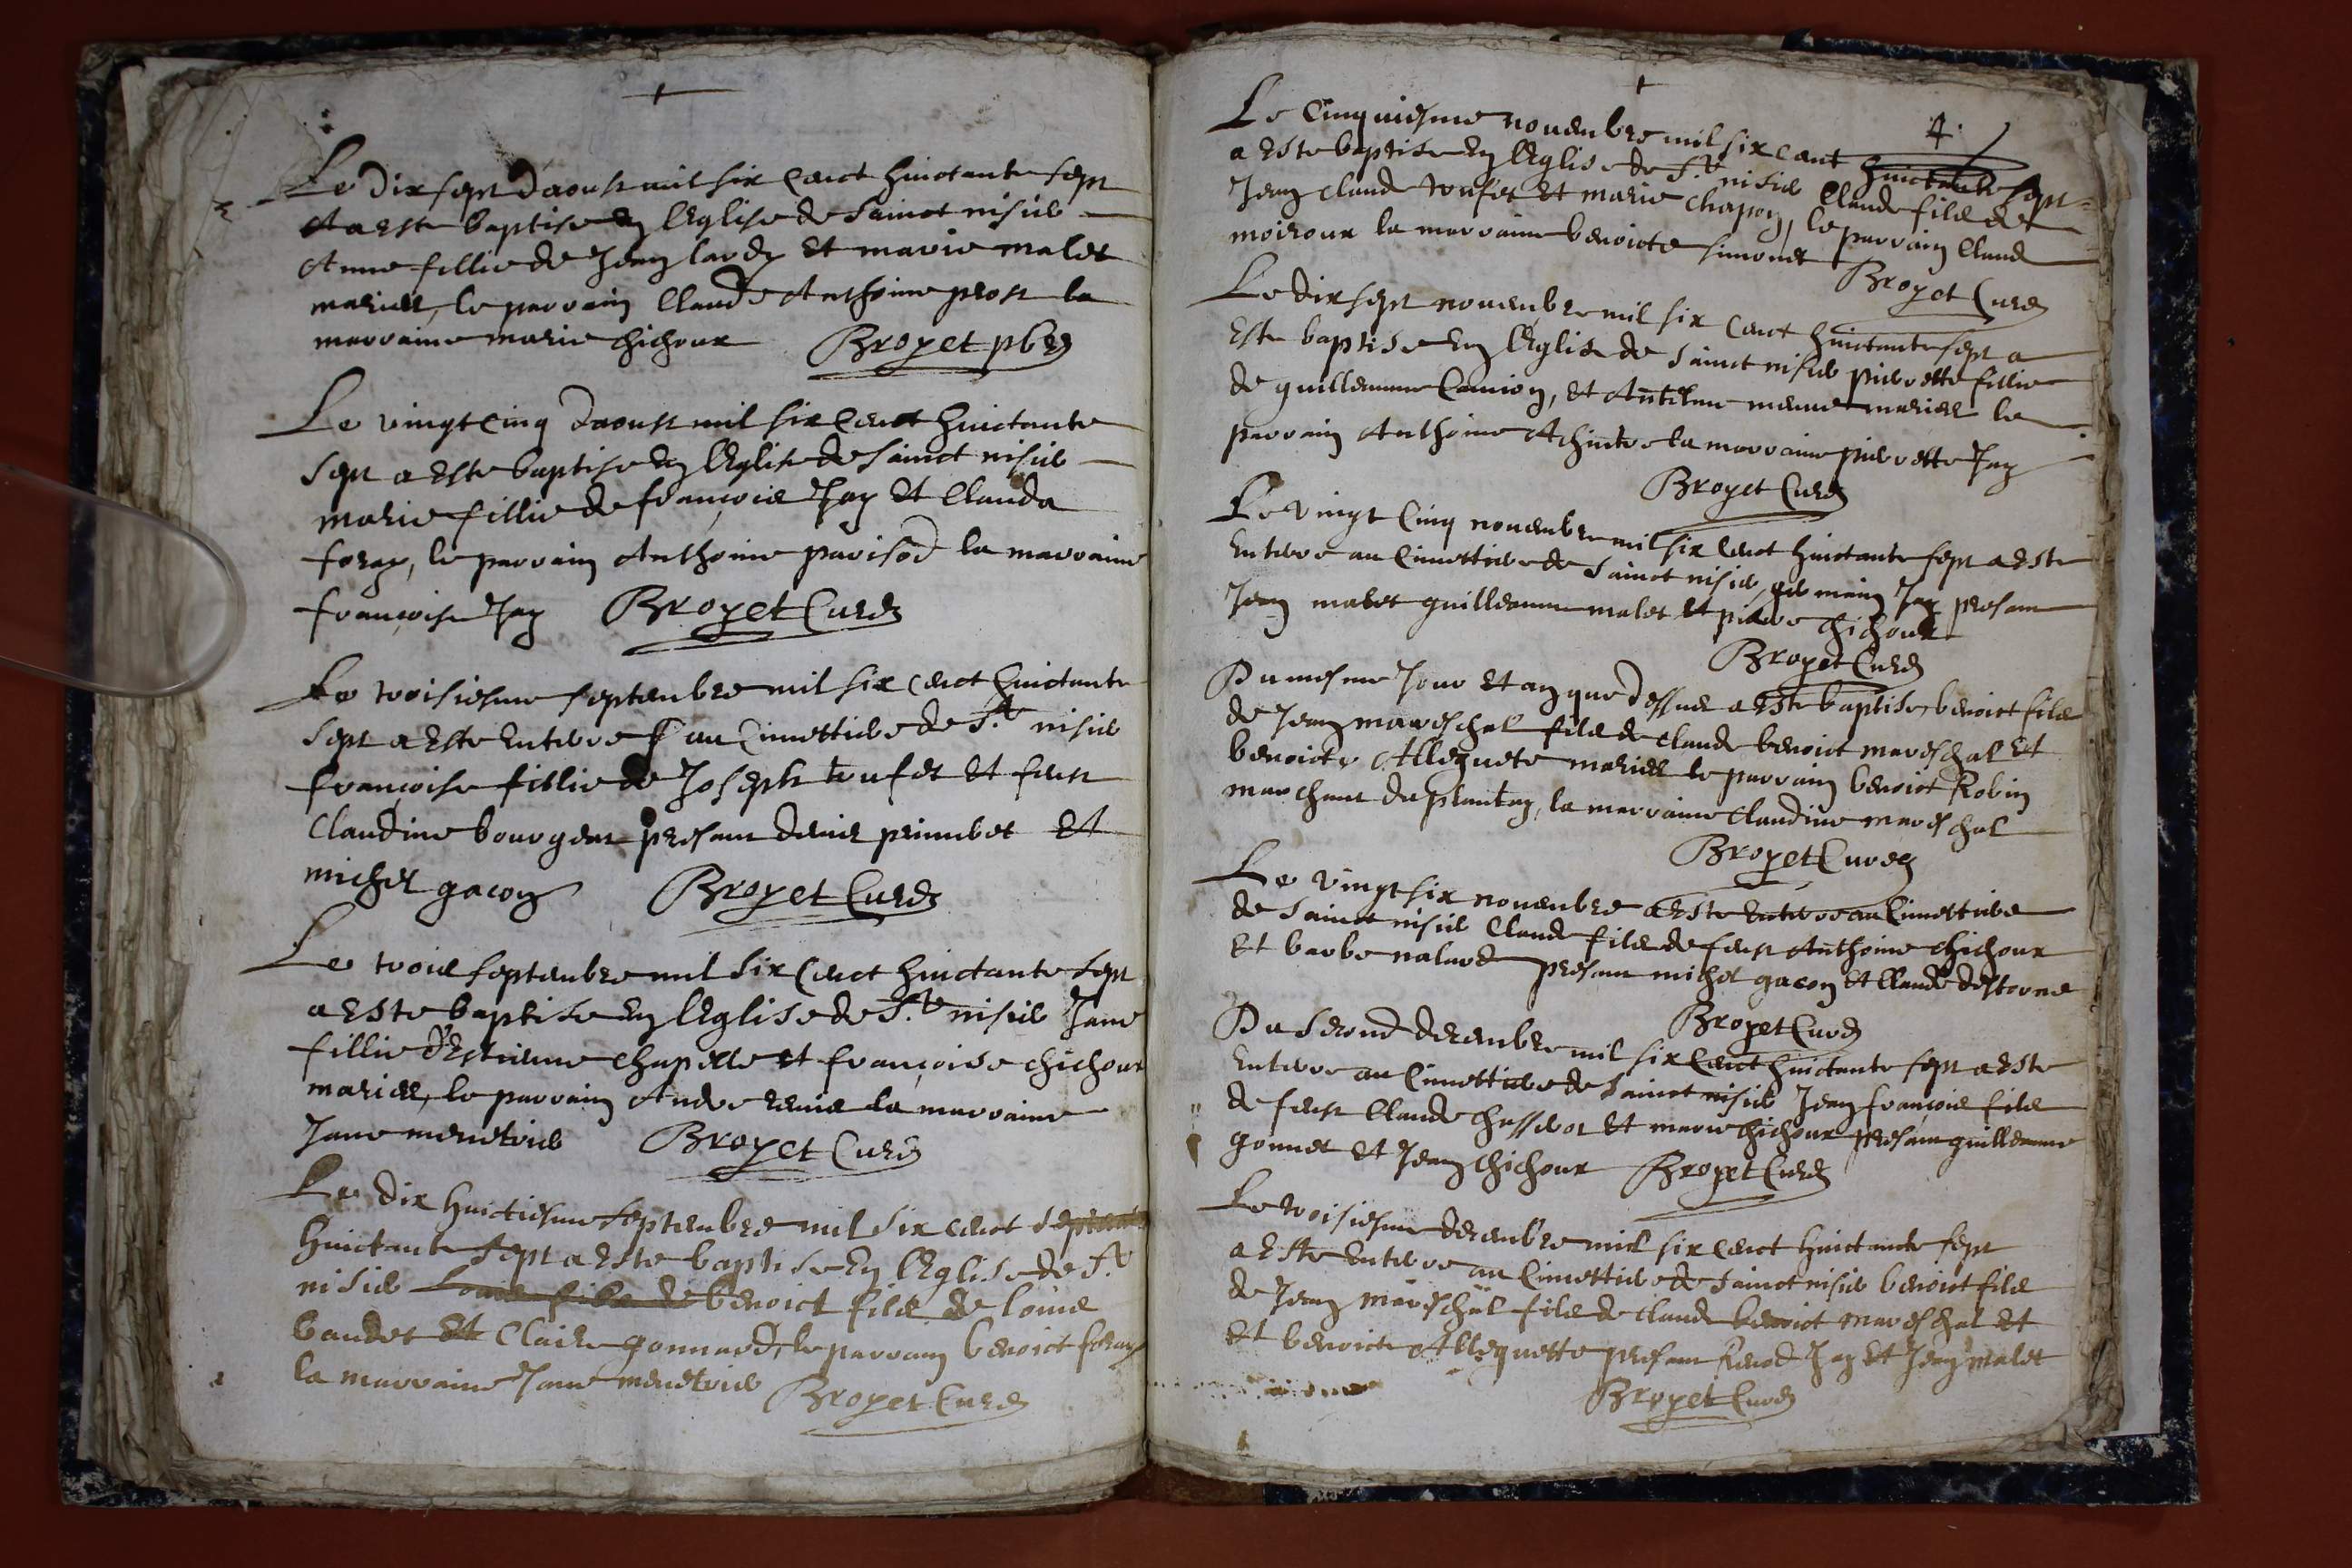 Le dix sept daoust mil six cenct huictante sept
a este baptise en lEglise de Sainct nisie
Anne fillie de Jean lardy et marie malet
maries, le parrain Claude Anthoine prost la
marraine marie chichoux Broyet pbre
Le vingt cinq daoust mil six cenct huictante
sept a este baptise en lEglise de Sainct nisie
marie fillie de françois Jay et Clauda
foray, le parrain Anthoine parisod la marraine
françoise Jay Broyet Curé
Le troisiesme septembre mil six cenct huictante
sept a este enterre au Cimettiere de St nisie
françoise fillie de Joseph tufet et feust
Claudine bourgeat presant denis et
michel gacon Broyet Curé
Le trois septembre mil six cenct huictante sept
a este baptise en lEglise de St nisie Jane
fillie d'Estienne Chapelle et françoise chichoux
maries, le parrain Andre la marraine
Jane menetrie Broyet Curé
Le dix huictiesme septembre mil six cenct septante
huictante sept a este baptise en lEglise de St
nisie Louis fils de benoict fils de louis
baudet et Claire gonnard, le parrain benoict foray
la marraine Jane menetrie Broyet Curé
4.
Le Cinquiesme novembre mil six cent huictante sept
a este baptise en lEglise de St nisie Claude fils de
Jean Claude tufet et marie Chapon, le parrain Claud
moiroux la marraine benoicte simonet
Broyet Curé
Le dix sept novembre mil six cenct huictante sept a
este baptise en lEglise de Sainct nisie pierrette fillie
de guillemme Camion, et Antelme maries le
parrain Anthoine la marraine pierrette Jay
Broyet Curé
Le vingt Cinq novembre mil six cenct huictante sept a este
enterre au Cimettiere de Sainct nisie, germain Jay presant
Jean malet guillemme malet et pierre chichoux
Broyet Curé
Du mesme Jour et an que dessus a este baptise, benoict fils
de Jean mareschal fils de Claude benoict mareschal et
benoicte Allequete maries le parrain benoict Robin
marchant du plantay, la marraine Claudine mareschal
Broyet Curé
Le vingt six novembre a este enterre au Cimettiere
de Sainct nisie Claude fils de feust Anthoine chichoux
et barbe nalard presant michel gacon et Claude
Broyet Curé
Du second decembre mil six cenct huictante sept a este
enterre au Cimettiere de Sainct nisie Jean françois fils
de feust Claude chasserot et marie chichoux presant guillemme
gonnet et Jean chichoux Broyet Curé
Le troisiesme decembre mil six cenct huictante sept
a este enterre au Cimettiere de Sainct nisie benoict fils
de Jean mareschal fils de Claude benoict mareschal et
et benoicte Allequette presant Jay et Jean malet
Broyet Curé